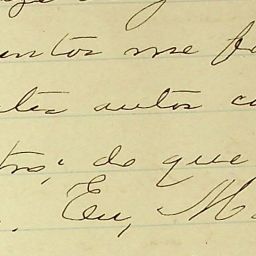 untos me fo
tes autos co
tro, do que
Eu, M